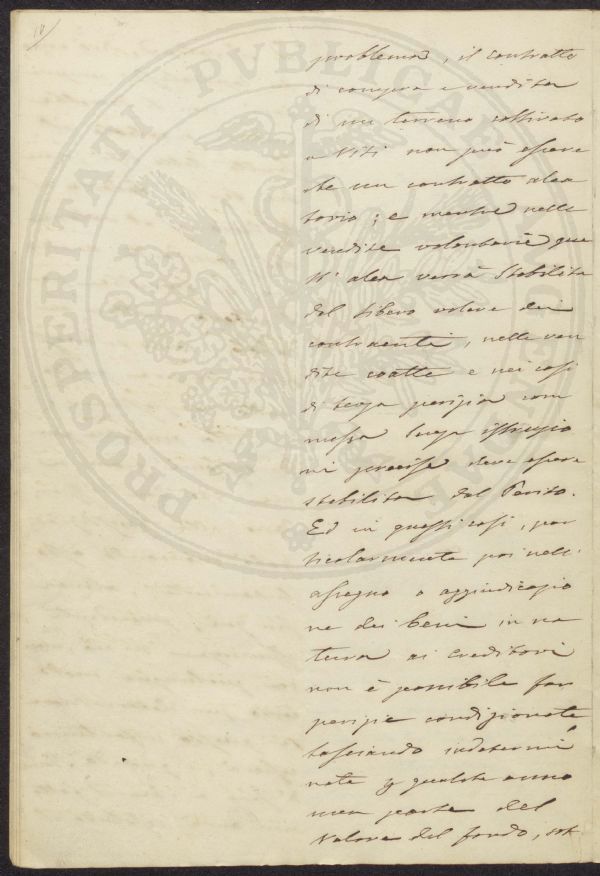 18
PROSPERITATI PVBLICAE AVGENDAE
problema, il contratto
di compra e vendita
di un terreno coltivato
a viti non può essere
che un contratto alea
torio; e mentre nelle
vendite volontarie que
st' alea verrà stabilita
dal libero volere dei
contraenti, nelle ven
dite coatte e nei casi
di terza perizia com
messa senza istruzio
ni precise deve essere
stabilita dal Perito.
Ed in questi casi, par
ticolarmente poi nell'
assegno o aggiudicazio
ne dei beni in na
tura ai creditori
non è possibile far
perizie condizionate
lasciando indetermi
nata per qualche anno
una parte del
valore del fondo, sot